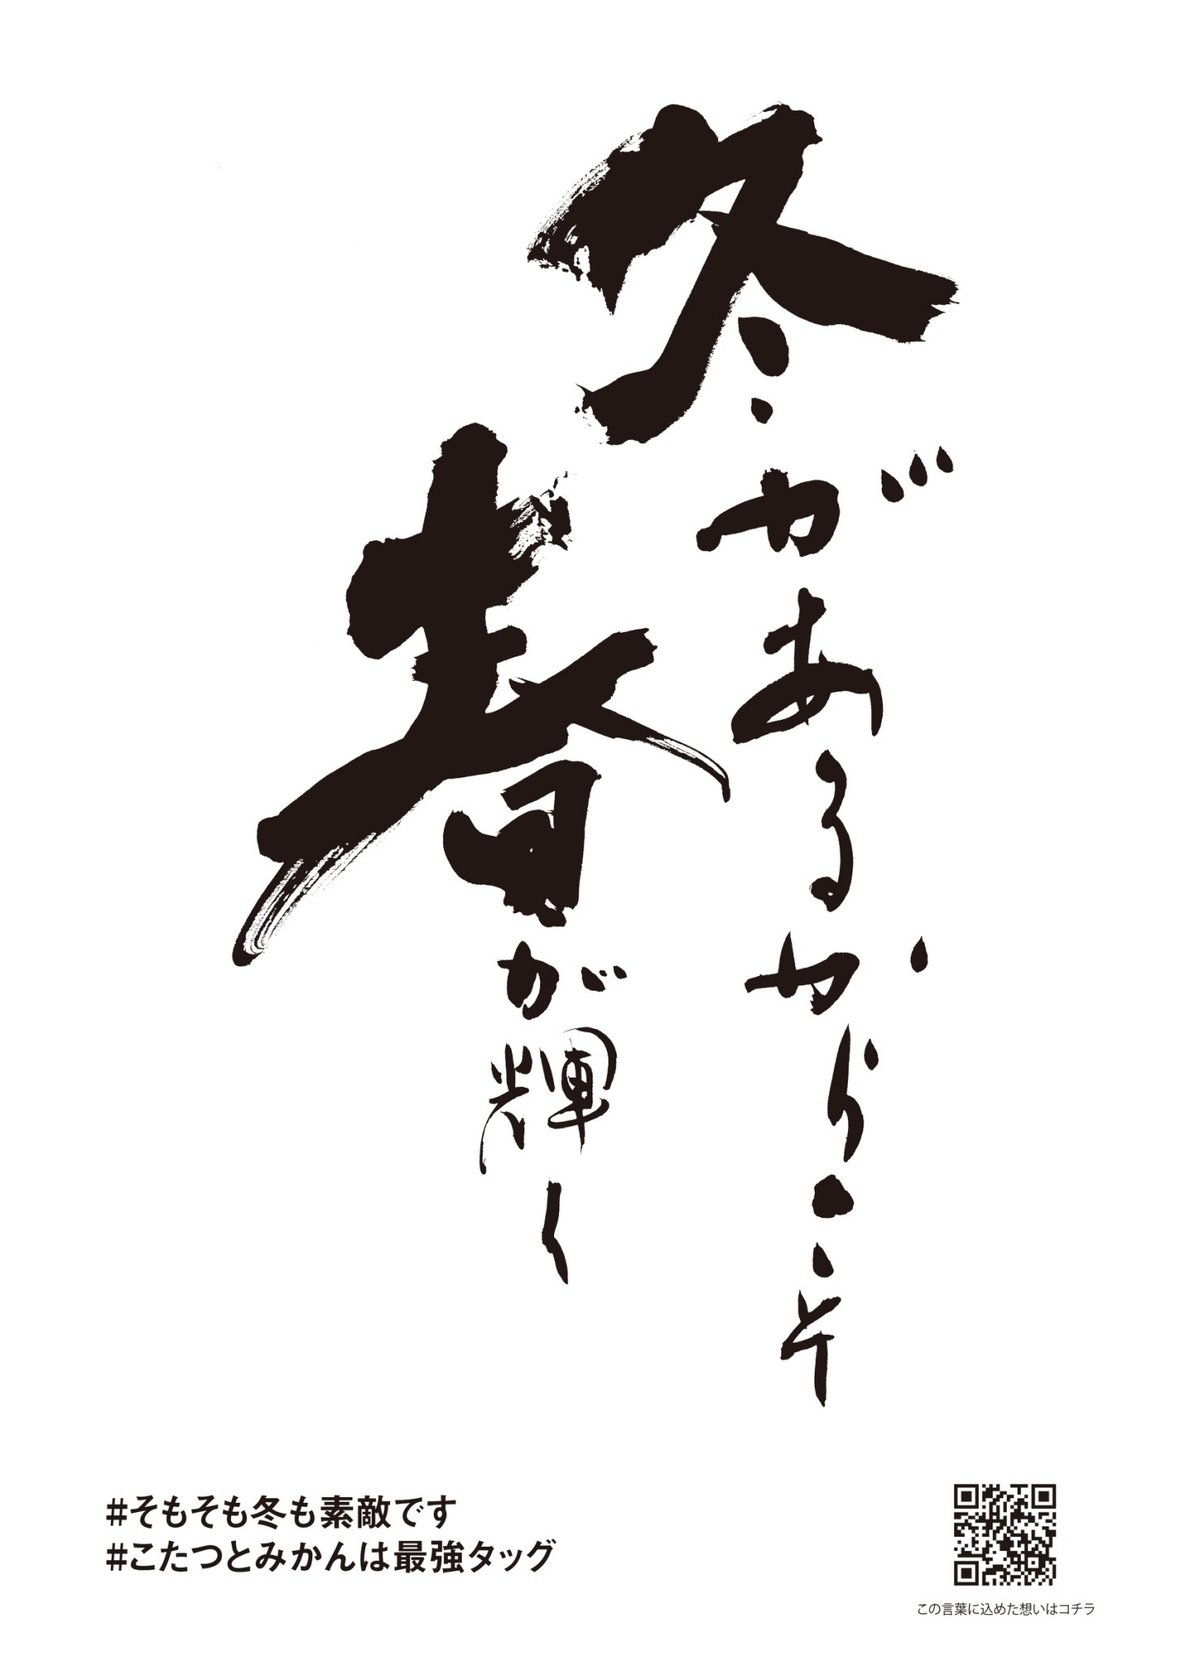 冬があるからこそ
春が輝く
#そもそも冬も素敵です
#こたつとみかんは最強タッグ
この言葉に込めた想いはコチラ